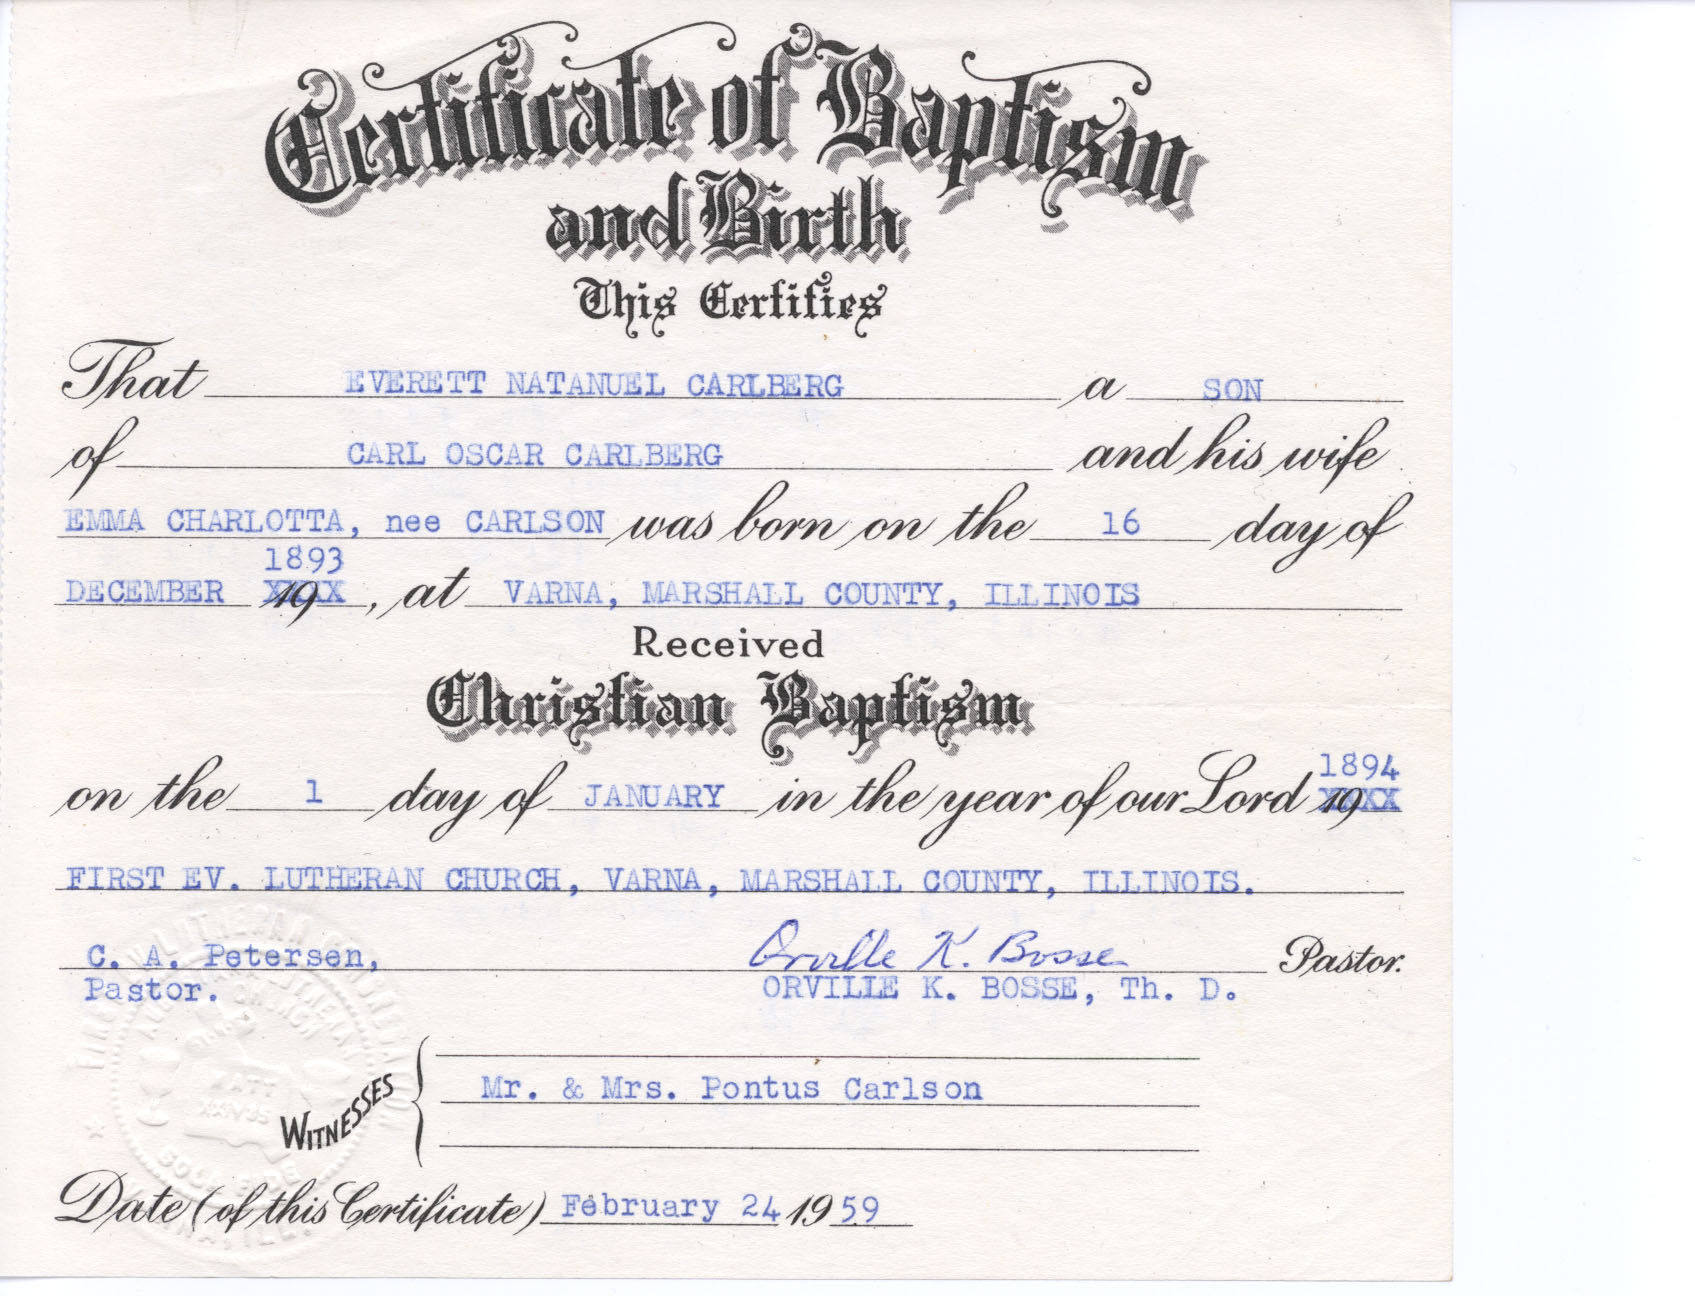 Certificate of Baptism
and Birth
This Certifies
That EVERETT NATANUEL CARLBERG a SON
of CARL OSCAR CARLBERG and his wife
EMMA CHARLOTTA, nee CARLSON was born on the 16 day of
1893
DECEMBER 19XX, at VARNA, MARSHALL COUNTY, ILLINOIS
Received
Christian Baptism
on the 1 day of JANUARY in the year of our Lord 19XX
1894
FIRST EV. LUTHERAN CHURCH, VARNA, MARSHALL COUNTY, ILLINOIS.
C. A. Petersen, Orville K. Bosse Pastor.
Pastor. ORVILLE K. BOSSE, Th. D.
WITNESSES
Mr. & Mrs. Pontus Carlson
Date (of this Certificate) February 24 1959